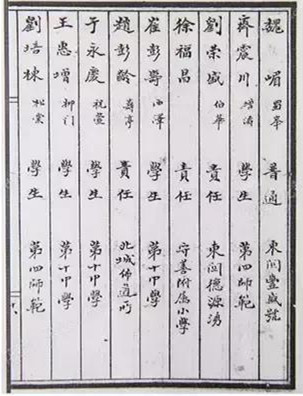 魏嵋 眉峯 普通 東関豐盛號
齊震川 增濤 學生 第四師範
劉荣盛 伯華 責任 東関德源湧
徐福昌 責任 守善附属小學
崔彭壽 西澤 學生 第十中學
趙彭齡 壽亭 責任 北城佈道所
于永慶 祝萱 學生 第十中學
王愚增 柳門 學生 第十中學
劉培棟 松堂 學生 第四師範